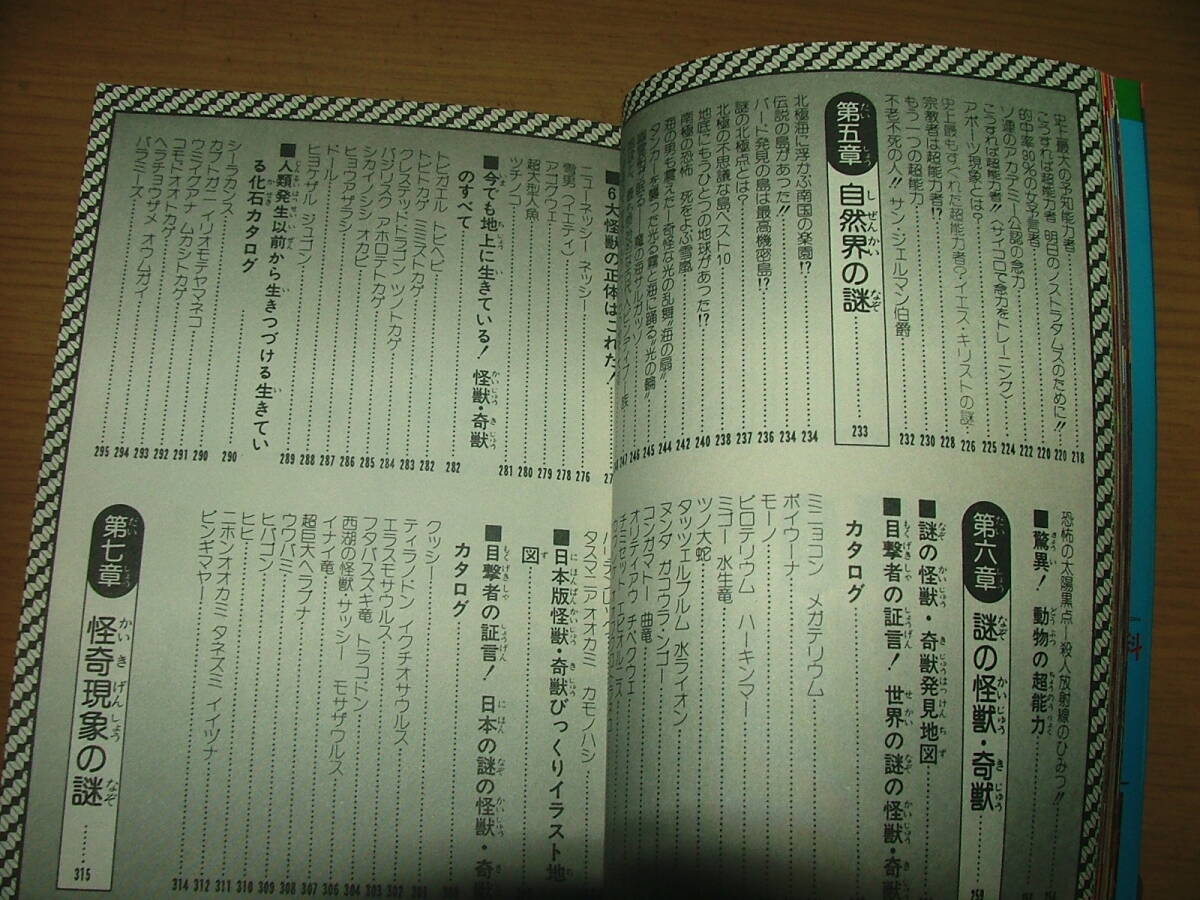 史上最大の予知能力者 218
こうすれば超能力者 明日のノストラダムスのために!! 220
的中率90%の女予言者 220
ソ連のアカデミー公認の念力 222
こうすれば超能力者!!〈サイコロで念力をトレーニング〉 224
アポーツ現象とは? 225
史上最もすぐれた超能力者?イエス・キリストの謎 226
宗教者は超能力者!? 228
もう一つの超能力 230
不老不死の人!! サン・ジェルマン伯爵 232
第五章 自然界の謎 233
北極海に浮かぶ南国の楽園!? 234
伝説の島があった!! 234
バード発見の島は最高機密島!? 236
謎の北極点とは? 237
北極の不思議な島ベスト10 238
地底にもうひとつの地球があった!? 240
南極の恐怖 死をよぶ雪嵐 242
海の男も震えた―奇怪な光の乱舞“海の扇” 244
タンカーを襲った光る霧と海に踊る“光の輪” 245
魔の海サルガッソ 246
247
恐怖の太陽黒点―殺人放射線のひみつ!!
■驚異! 動物の超能力
第六章 謎の怪獣・奇獣
■謎の怪獣・奇獣発見地図
■目撃者の証言! 世界の謎の怪獣・奇
カタログ
ミニョコン メガテリウム
ボイウーナ
モーノ
ピロテリウム ハーキンマー
ミゴー 水生竜
ツノ大蛇
タッツェルブルム 水ライオン
ヌンダ ガコウラ・ンゴー
コンガマトー 曲竜
オリティアウ チペクウェ
■6大怪獣の正体はこれだ!
ニューネッシー ネッシー 276
雪男(イエティ) 278
アイヌウェ 279
超大型人魚 280
ツチノコ 281
■今でも地上に生きている! 怪獣・奇獣
のすべて 282
トビガエル トビヘビ 282
トビトカゲ ミミズトカゲ 283
クレステッドドラゴン ツノトカゲ 284
バジリスク アホロテトカゲ 285
シカイノシシ オカピ 286
ヒョウアザラシ 287
ドール 288
ヒヨケザル ジュゴン 289
■人類発生以前から生きつづける生きてい
る化石カタログ 290
シーラカンス 290
カブトガニ イリオモテヤマネコ 291
ウミイグアナ ムカシトカゲ 292
コモドオオトカゲ 293
ヘラチョウザメ オウムガイ 294
バラミーズ 295
タスマニアオオカミ カモノハシ
■日本版怪獣・奇獣びっくりイラスト地
図
■目撃者の証言! 日本の謎の怪獣・奇
カタログ
クッシー
ティランドン イクチオサウルス
エラスモサウルス 302
フタバスズキ竜 トラコドン 303
西湖の怪獣・サッシー モサザウルス 304
イナイ竜 306
超巨大ヘラブナ 307
ウワバミ 308
ヒバゴン 309
ヒヒ 310
ニホンオオカミ タネズミ イイヅナ 311
ピンギマヤー 312
314
第七章 怪奇現象の謎 315